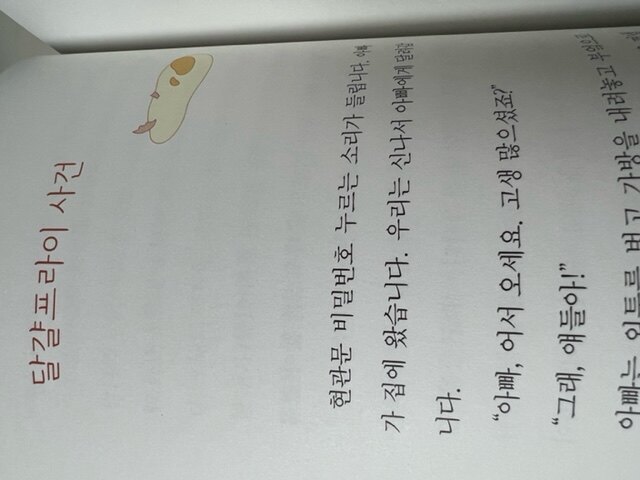 달걀프라이 사건
현관문 비밀번호 누르는 소리가 들립니다. 아빠
가 집에 왔습니다. 우리는 신나서 아빠에게 달려갑
니다.
“아빠, 어서 오세요. 고생 많으셨죠?”
“그래, 얘들아!”
아빠는 외투를 벗고 가방을 내려놓고 부엌으로